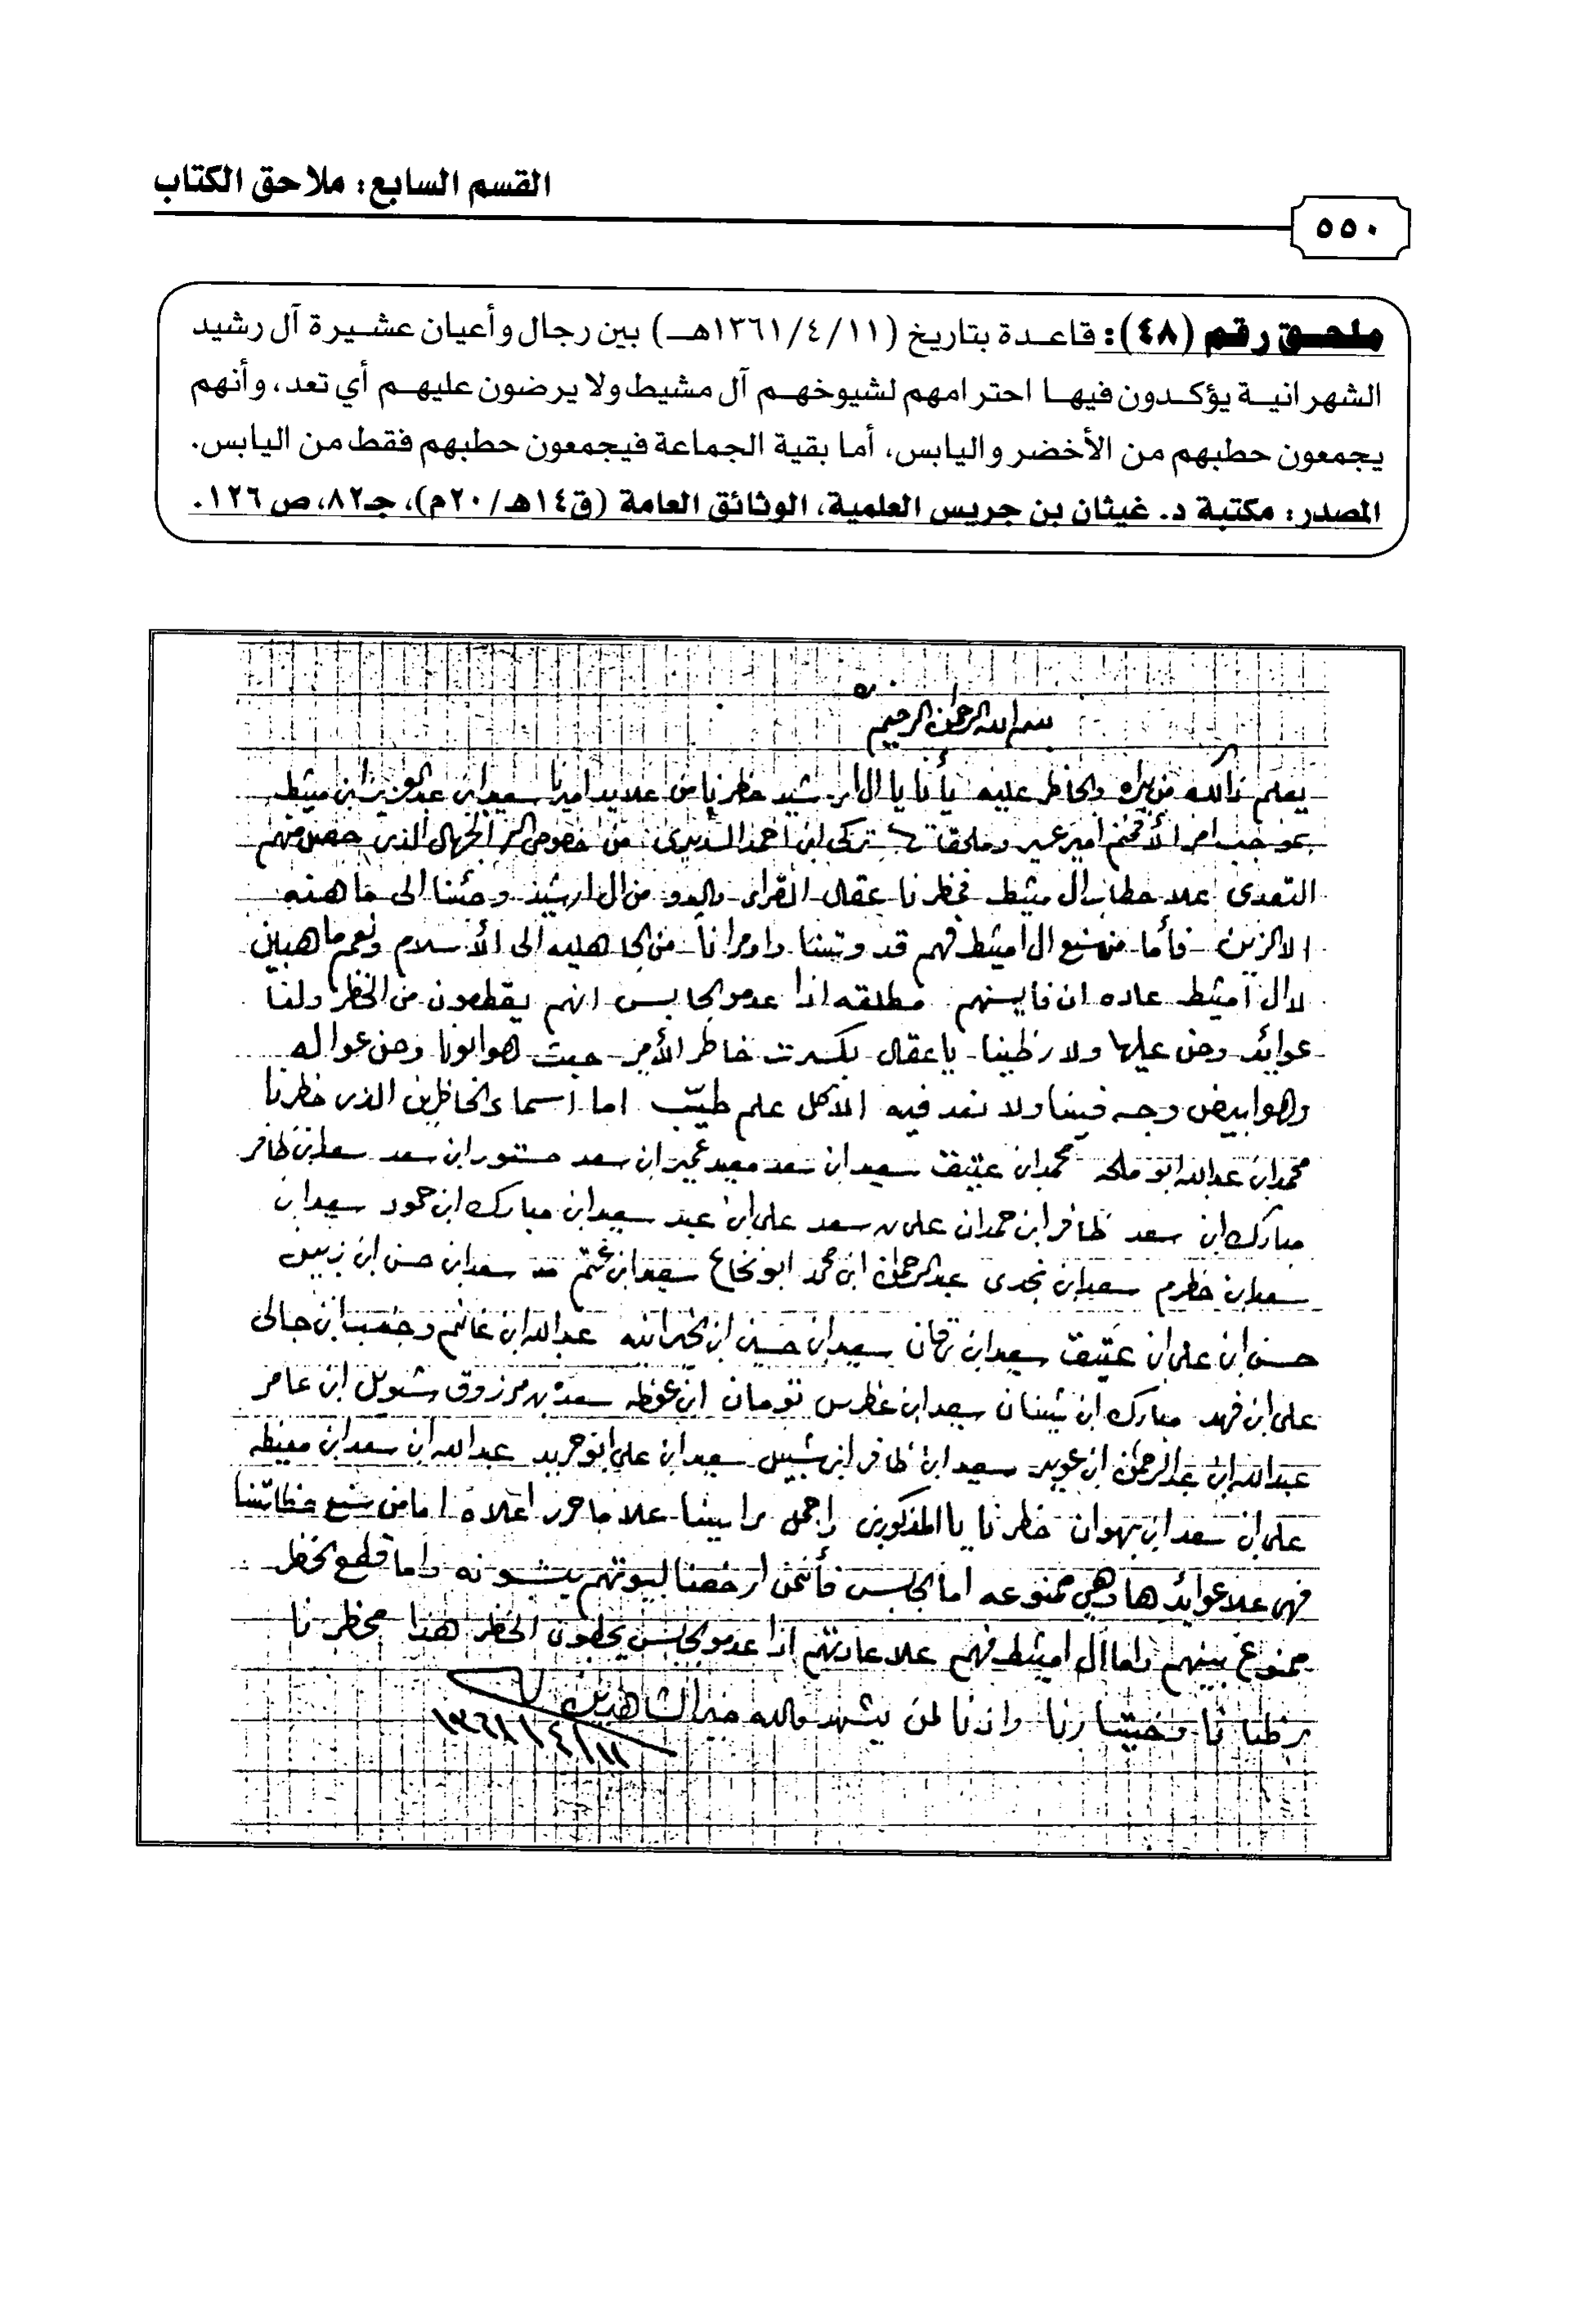 القسم السابع: ملاحق الكتاب
٥٥٠
ملحق رقم (٤٨): قاعدة بتاريخ (١٣٦١/٤/١١هـ) بين رجال وأعيان عشيرة آل رشيد
الشهرانية يؤكدون فيها احترامهم لشيوخهم آل مشيط ولا يرضون عليهم أي تعد، وأنهم
يجمعون حطبهم من الأخضر واليابس، أما بقية الجماعة فيجمعون حطبهم فقط من اليابس.
المصدر: مكتبة د. غيثان بن جريس العلمية، الوثائق العامة (ق١٤هـ/٢٠م)، جـ٨٢، ص ١٢٦.
بسم الله الرحمن الرحيم
يعلم من يراه والحاظر عليه بأنا يا ال ارشيد حظرنا من علايد اميرنا سعيد ابن عبد العزيز ابن مشيط
بموجب امر الأفخم امير عسير وملحقاتها تركي ابن احمد السديري من خصوص الجهال الذي حصل منهم
التعدى علا حطاب ال مشيط فحظرنا عقال القرا والبدو من ال ارشيد وجئنا الى ما هنه
الازين فأما من شيع ال امشيط فهم قد وتسنا واومرانا من الجاهليه الى الأسلام ونعم ماهبين
لال امشيط عاده ان فايسهم مطلقه اذا عدمو اليابس انهم يقطعون من الخظر ولنا
عوايد وحن عليها ولا رظينا ياعقال بكسرت خاطر الأمير حيث هو ابونا وحن عوا له
وهو ابيض وجه فينا ولا نعد فيه الا كل علم طيب اما اسماء الحاظرين الذي حظرنا
محمد ابن عبدالله ابو ملحه محمد ابن عتيق سعيد ابن سعد معيد عمير ابن سعد مستور ابن سعد سعد ابن ظافر
مبارك ابن سعد ظافر ابن حمدان على بن سعد على ابن عبد سعيد ابن مبارك ابن حمود سعيد ابن
سعد ابن حظرم سعيد ابن نجدى عبدالرحمن ابن محمد ابو نخاع سعيد ابن غنم سعد ابن حسن ابن زبين
حسن ابن على ابن عتيق سعيد ابن ترحان سعيد ابن حسين ابن خيرالله عبدالله ابن غانم ابن جالى
على ابن فهد مبارك ابن شينان سعد ابن غطرس نومان ابن عوظه سعد بن مرزوق شويل ابن عامر
عبدالله ابن عبدالرحمن ابن عويد سعيد ابن ظافر ابن شبيس سعيد ابن علي ابو حريد عبدالله ابن سعد ابن معيظه
على ابن سعد ابن بهوان حظرنا يا المذكورين واجمل راسنا علا ما حرر اعلاه اما من شيع حطابتنا
فهى علا عوايدها وهي ممنوعه اما اليابس فأنحن ارخصنا لبيوتهم يشونه واما قطع الخظر
ممنوع بينهم واما ال امشيط فهم علا عادتهم اذا عدمو اليابس يحطبون الخظر هذا محظرنا
برظانا وختيارنا واذنا لمن يشهد والله خير الشاهدين
١٣٦١/٤/١١